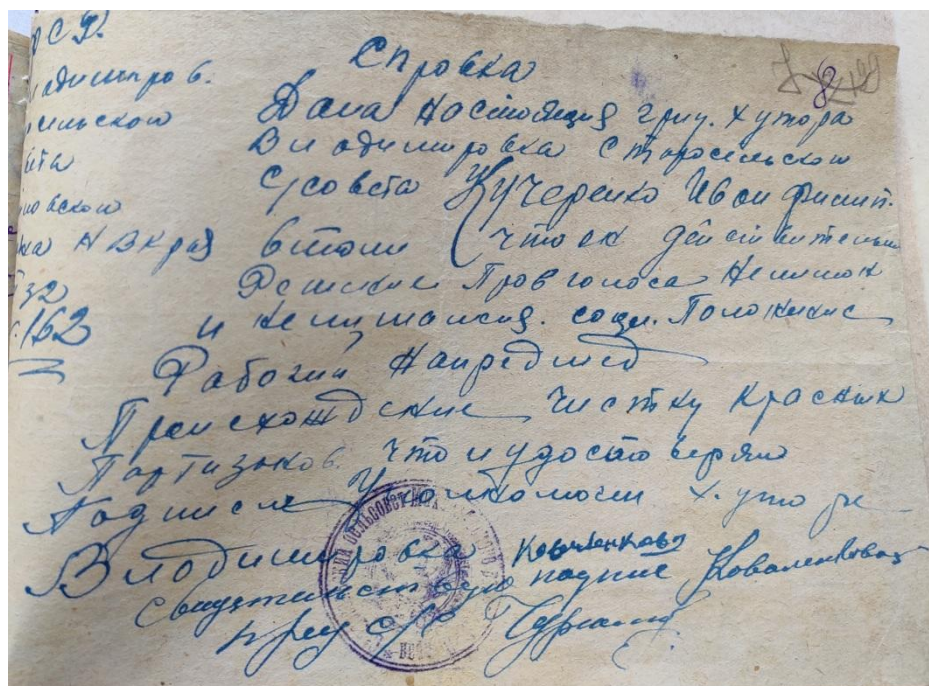 РСФ.
Владимиров.
сельского
Спровка
Дана настоящия граж. хутора
Владимировка Старосельского
С/совета Кучеренко Иван Филип.
в том что он действительно
НВКрая
32
162
Правголоса Нелишон
и нелишался. соци. Положение
Рабочий Напредмед
Происхождение чистку Красных
Партизанов что и удостоверяю
Подпись Уполномочен хуто ра
Владимировка Коваленкова
Свидетельствую подпис Коваленкова
пред С/С
8